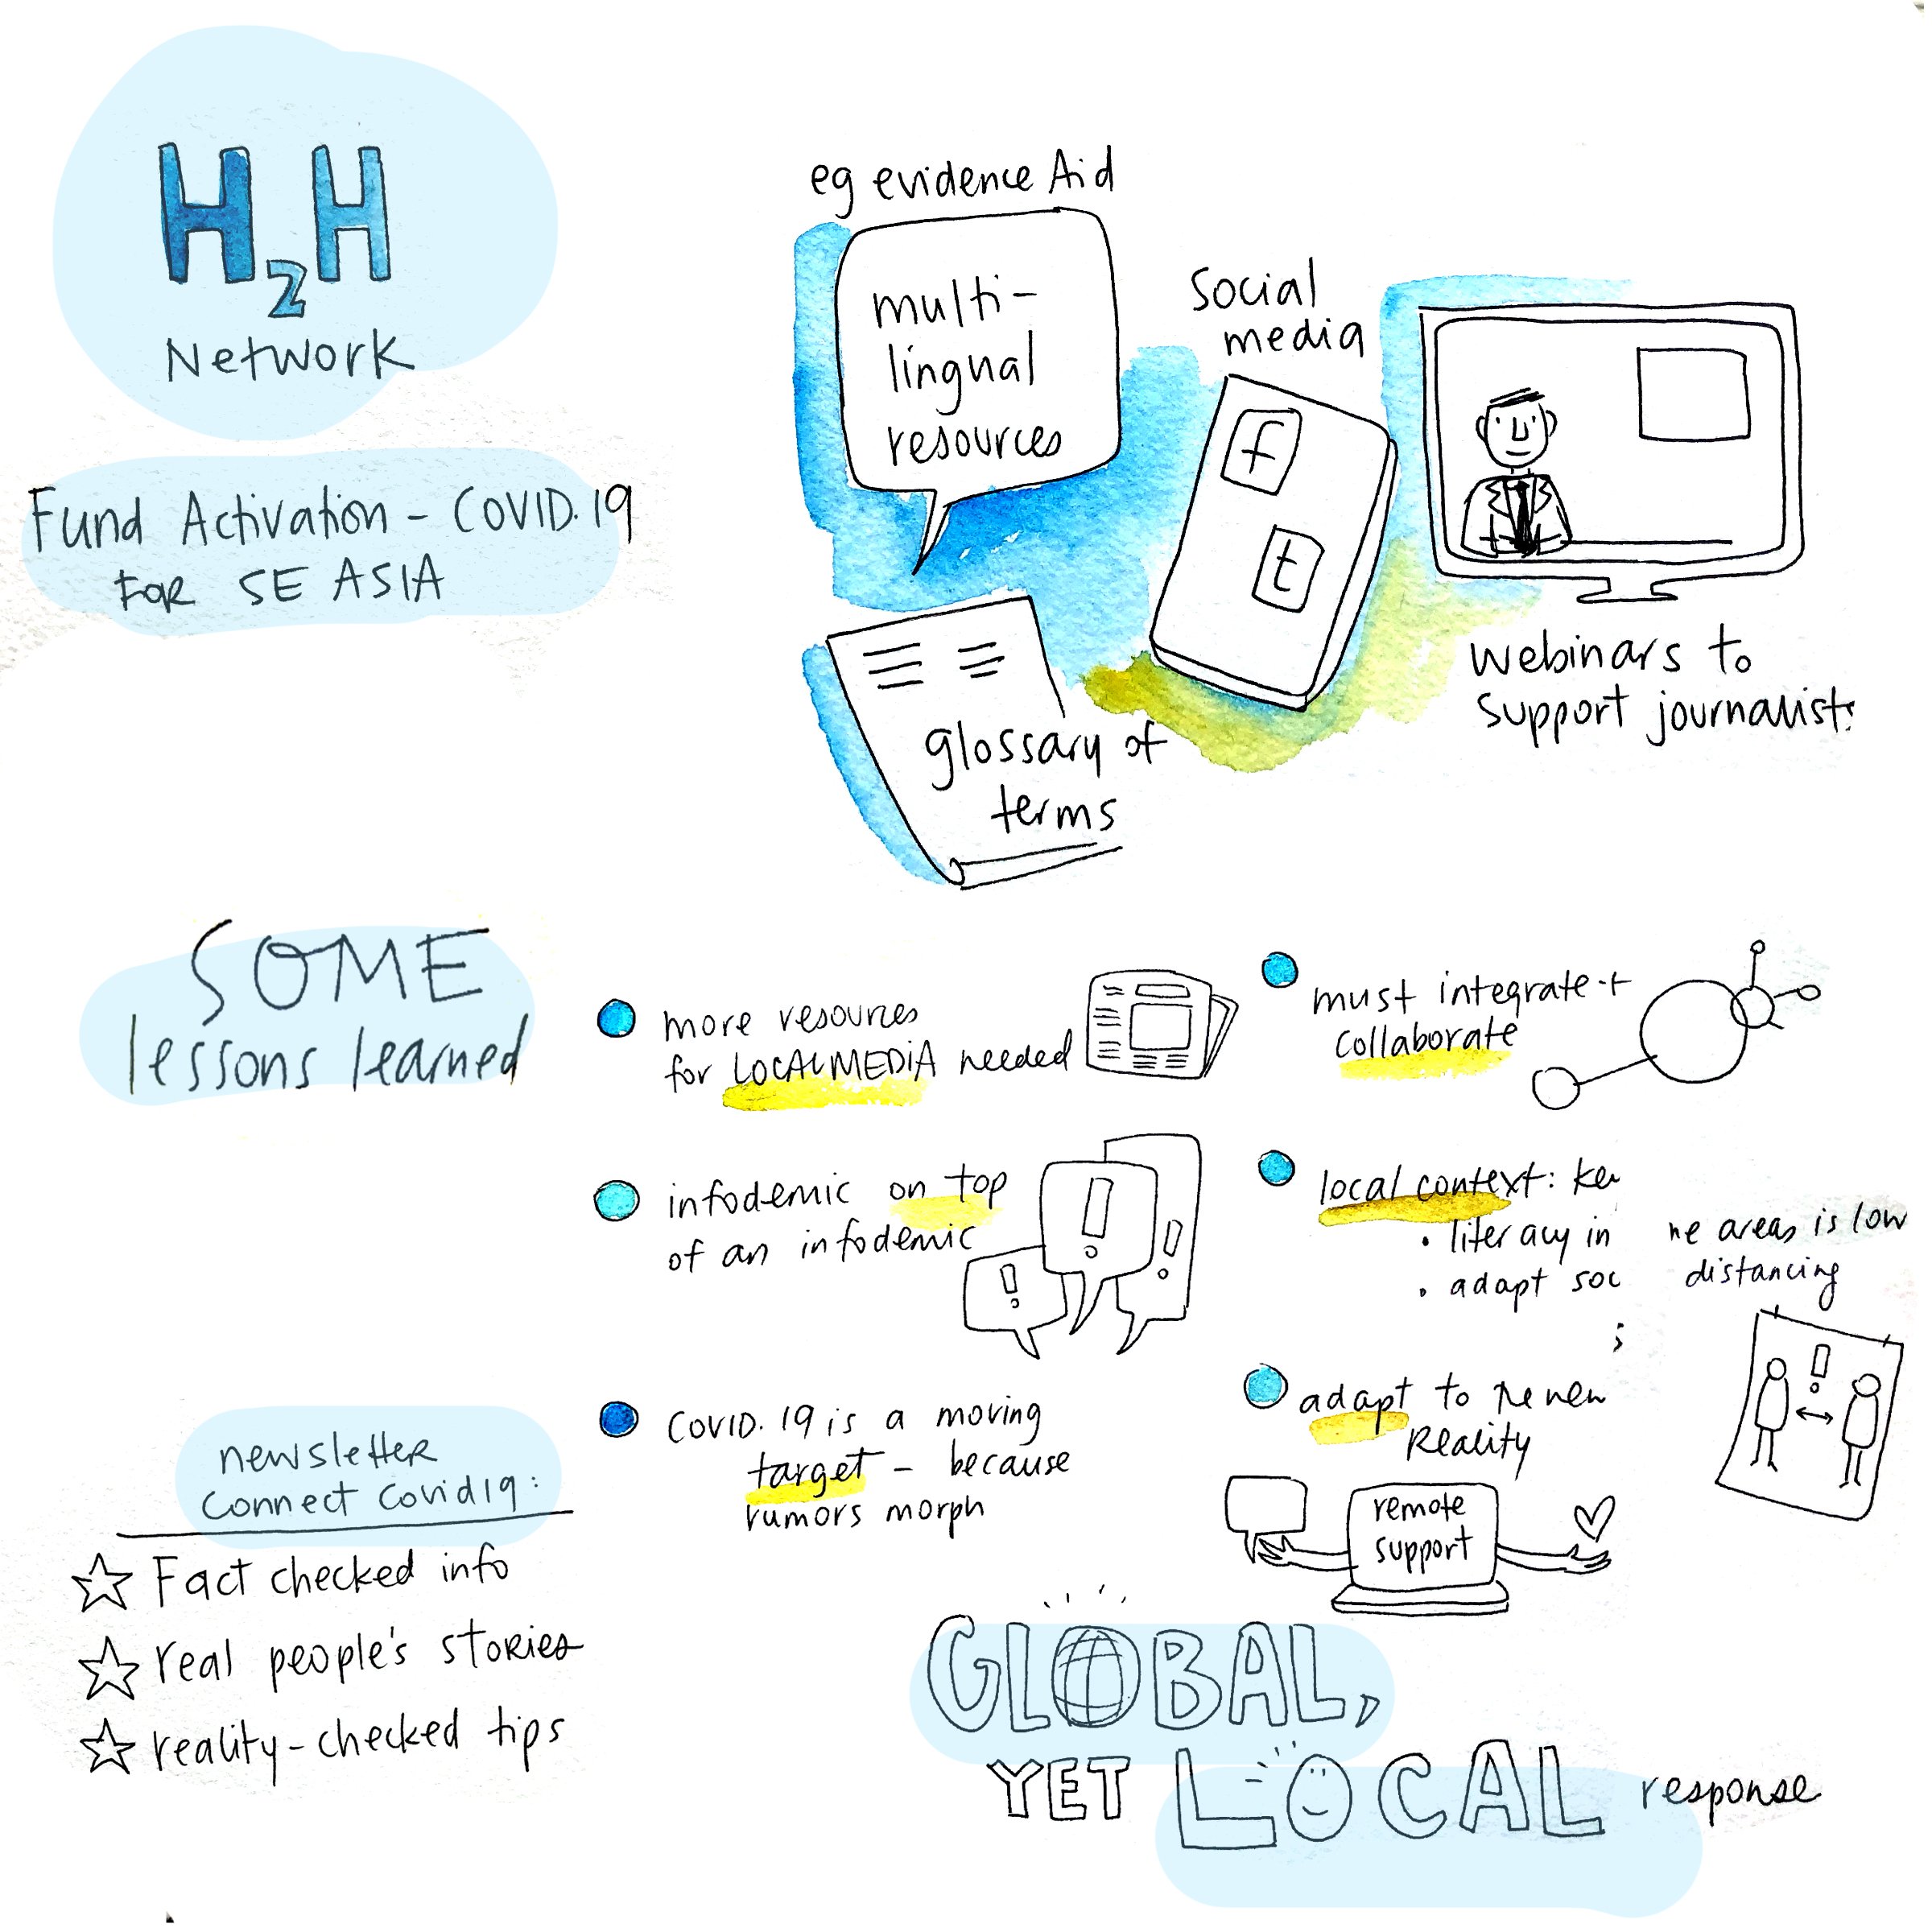 H2H
Network
Fund Activation - COVID.19
FOR SE ASIA
eg evidence Aid
multi-
lingual
resources
social
media
f
t
webinars to
support journalists
glossary of
terms
SOME
lessons learned
more resources
for LOCAL MEDIA needed
must integrate +
collaborate
infodemic on top
of an infodemic
local context:
• literacy in ne areas is low
• adapt soc distancing
COVID.19 is a moving
target - because
rumors morph
adapt to the new
Reality
remote
support
newsletter
connect Covid19:
Fact checked info
real people's stories
reality-checked tips
GLOBAL,
YET LOCAL response